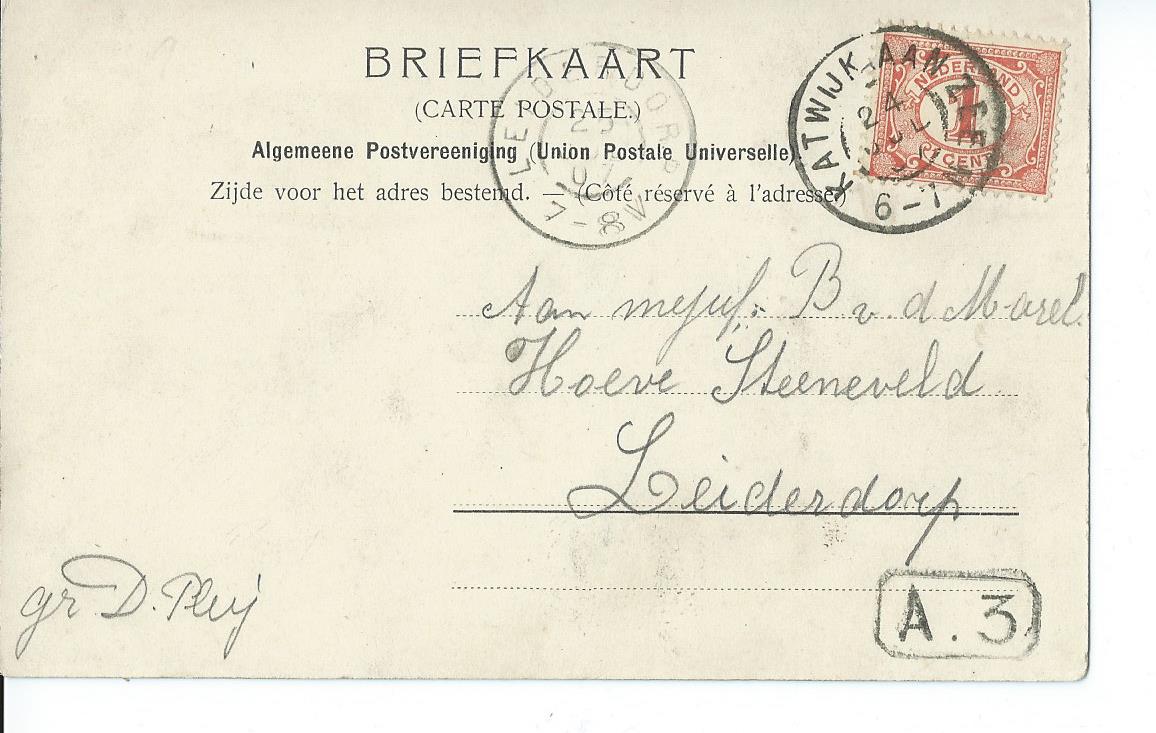 BRIEFKAART
(CARTE POSTALE.)
Algemeene Postvereeniging (Union Postale Universelle).
Zijde voor het adres bestemd. — (Côté réservé à l'adresse.)
LEIDERDORP
7-8V
KATWIJK AAN ZEE
24 JUL
6-7
NEDERLAND
1
CENT
Aan mejuf: B v. d Marel.
Hoeve Steeneveld
Leiderdorp
gr. D. Pleij
A. 3